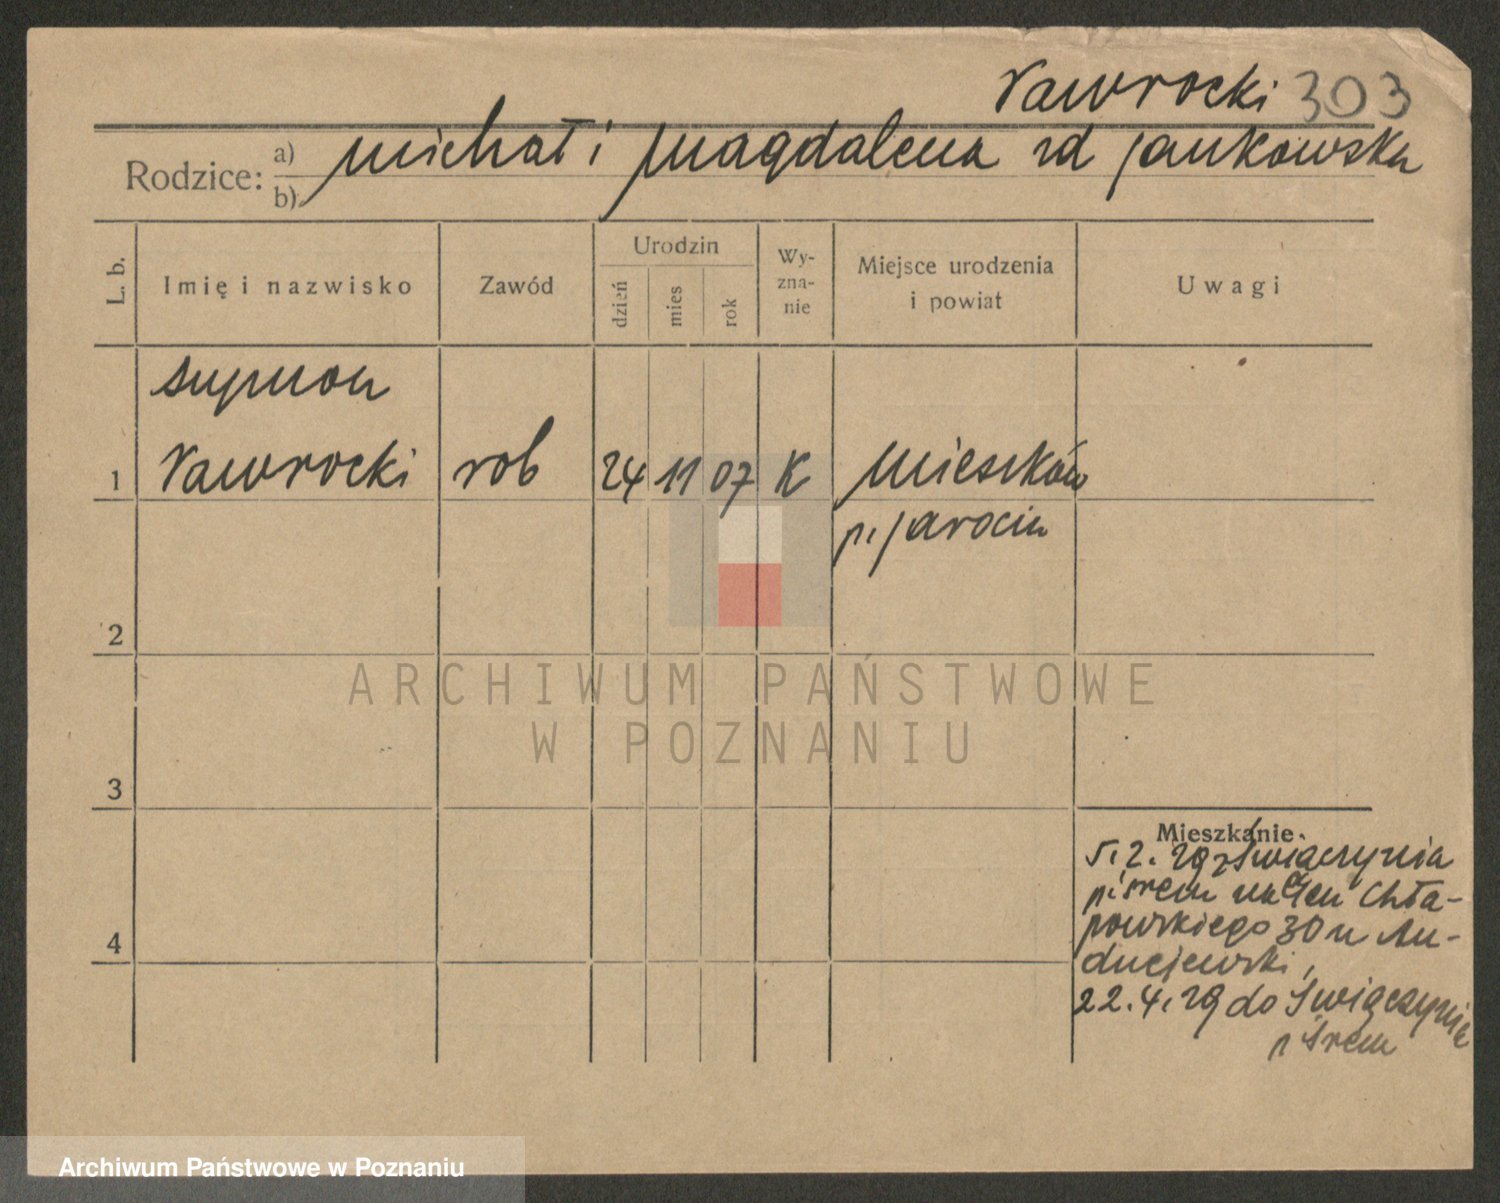 Nawrocki 303
Rodzice: a) b) Michał i Magdalena zd Jankowska
L. b.
Imię i nazwisko
Zawód
Urodzin
dzień
mies
rok
Wy-
zna-
nie
Miejsce urodzenia
i powiat
Uwagi
Szymon
1 Nawrocki rob 24 11 07 K Mieszków
p. Jarocin
2
ARCHIWUM PAŃSTWOWE
W POZNANIU
3
Mieszkanie.
5.2.29 z Świączynia
p. Śrem na Gen Chła-
4 powskiego 30 u An-
drzejewski,
22.4.29 do Świączynie
p Śrem
Archiwum Państwowe w Poznaniu